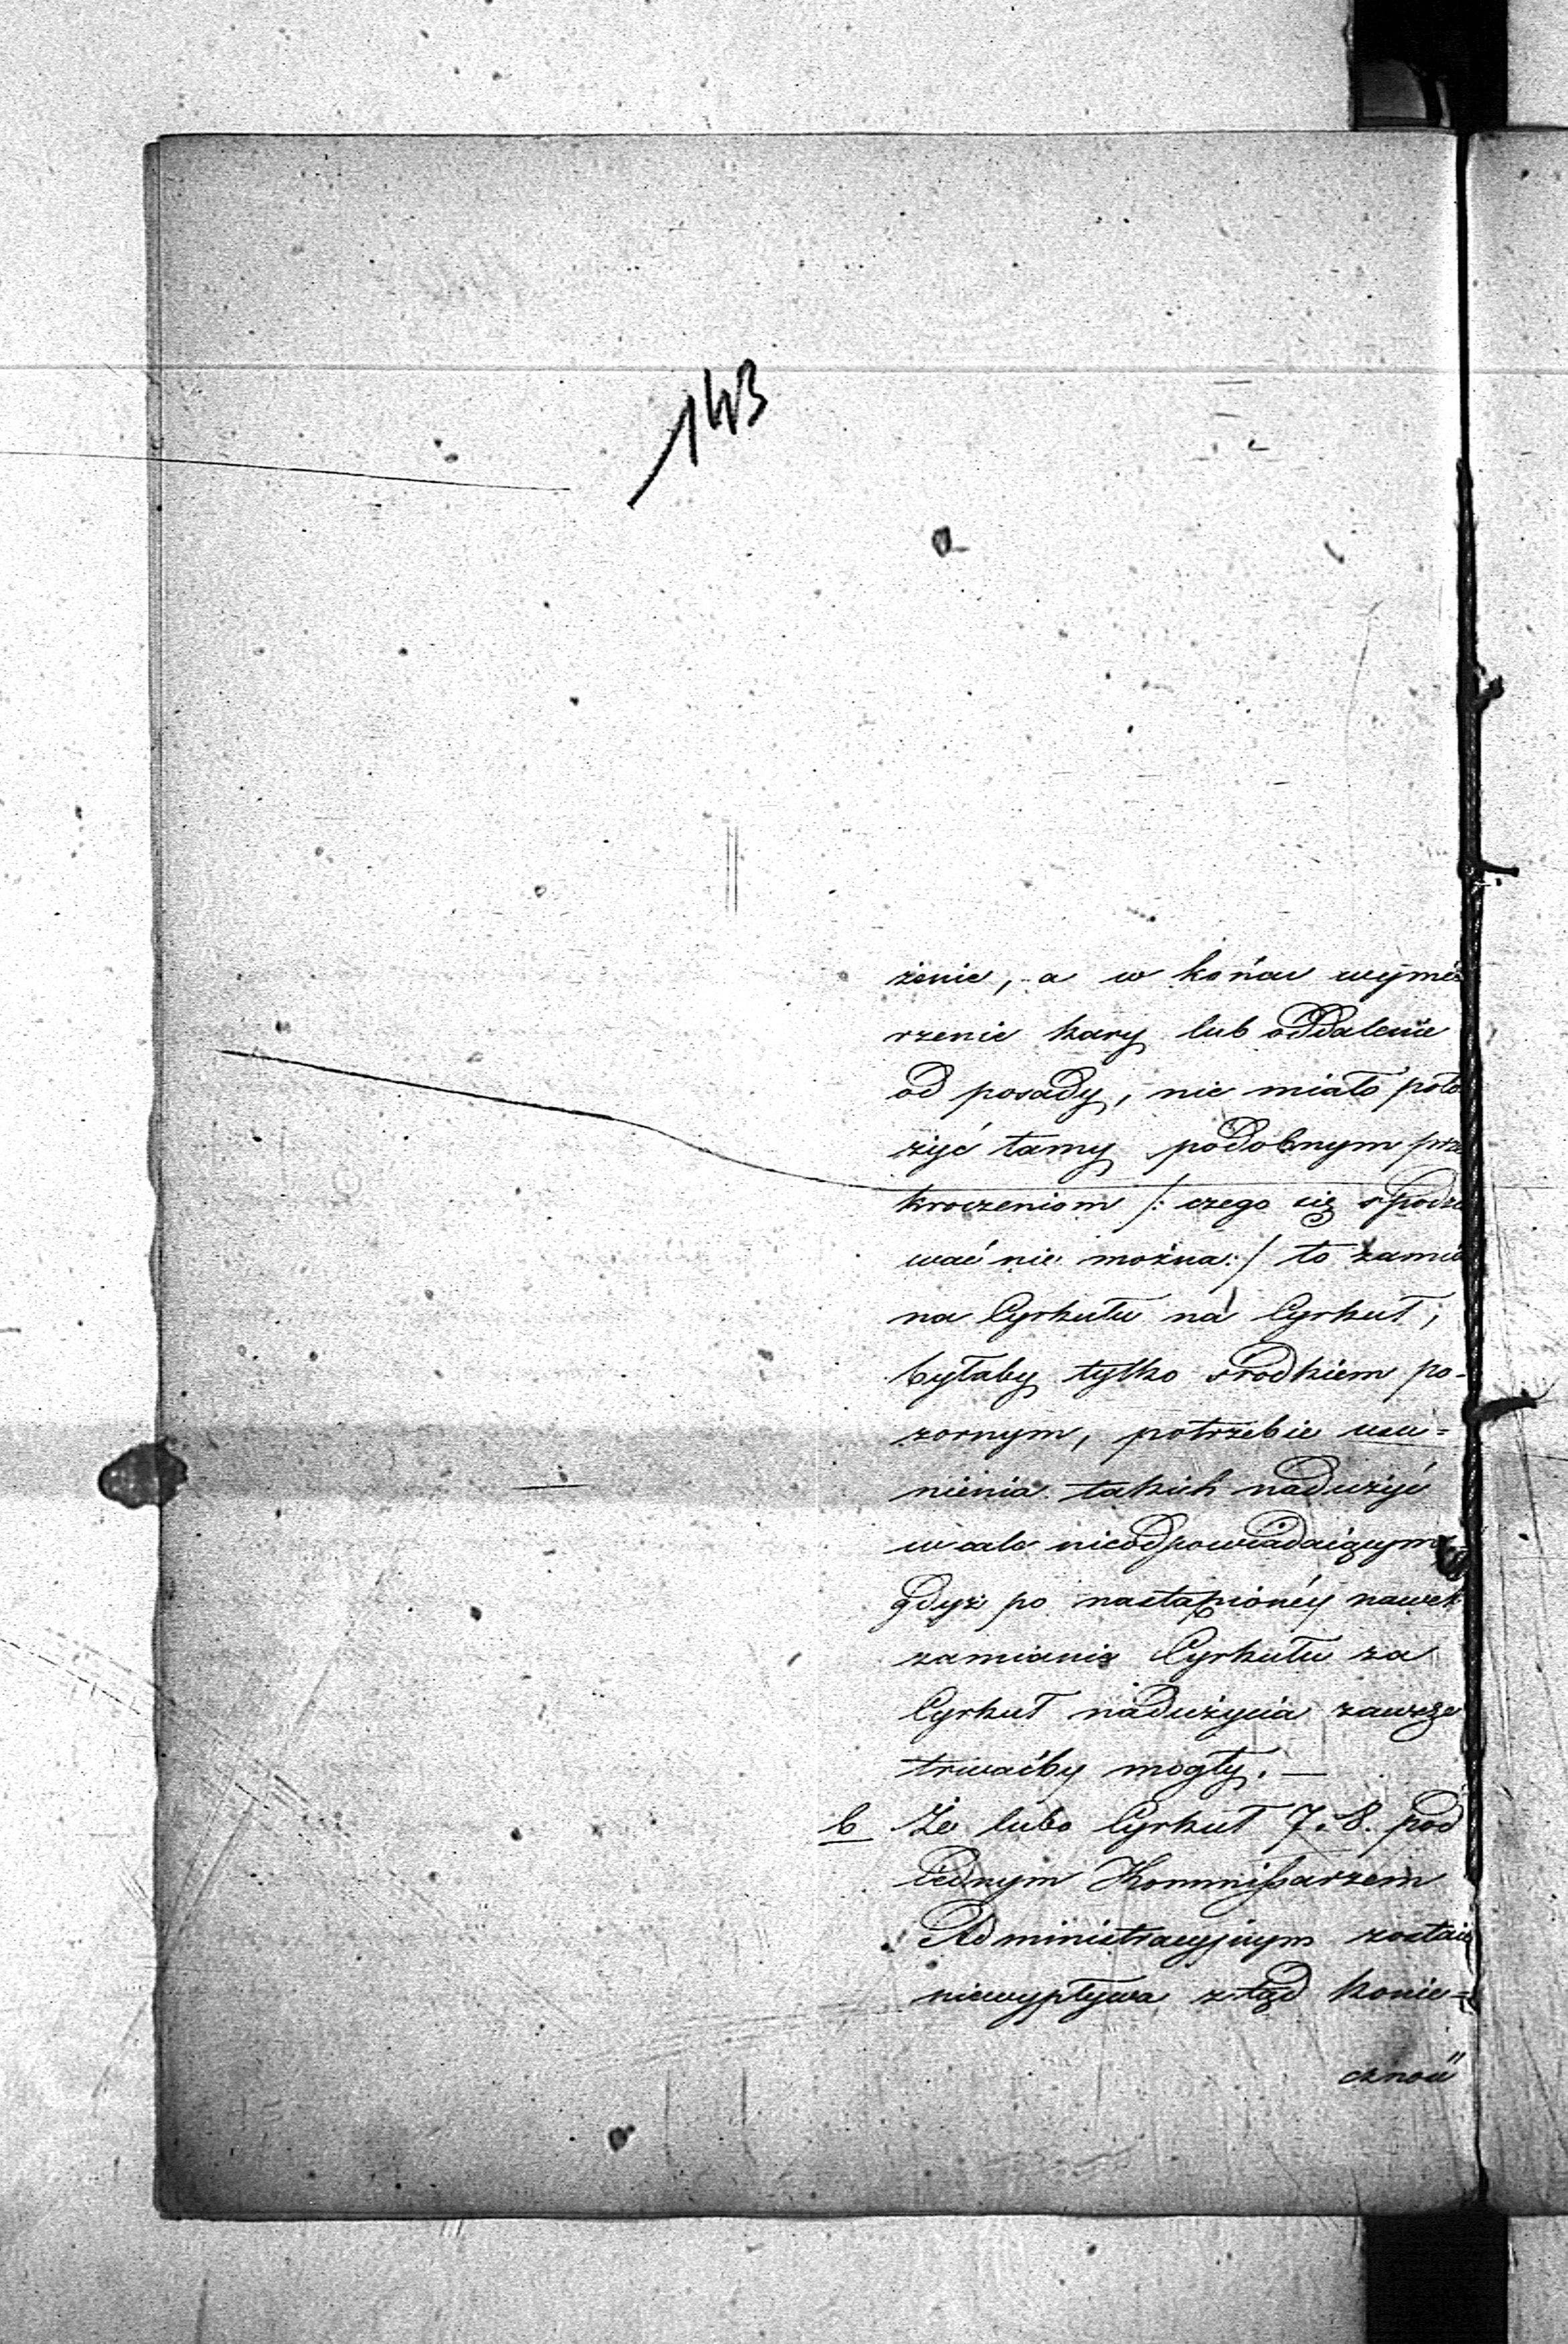 143
żenie, a w końcu wymie
rzenie kary lub oddalenie
od posady, nie miało poło
żyć tamy podobnym prze
kroczeniom /: czego się spodzie
wać nie można :/ to zamia
na Cyrkułu na Cyrkuł,
byłaby tylko środkiem po-
zornym, potrzebie usu=
nienia takich nadużyć
wcale nieodpowiadaiącym
gdyż po nastąpionéy nawet
zamianie Cyrkułu za
Cyrkuł nadużycia zawsze
trwaćby mogły. —
b Że lubo Cyrkuł 7. 8. pod
iednym Kommissarzem
Administracyjnym zostaie
niewypływa ztąd konie=
czność